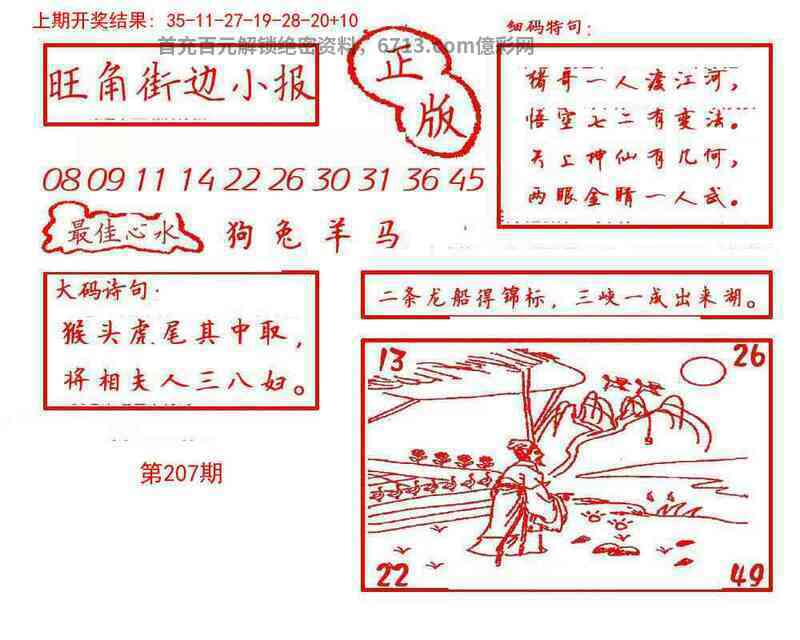 上期开奖结果：35-11-27-19-28-20+10
首充百元解锁绝密资料，6713.com億彩网
旺角街边小报
正版
细码特句：
猪哥一人渡江河，
悟空七二有变法。
天上神仙有几何，
两眼金睛一人武。
08 09 11 14 22 26 30 31 36 45
最佳心水 狗兔羊马
大码诗句：
猴头虎尾其中取，
将相夫人三八妇。
第207期
二条龙船得锦标，三峡一成出来湖。
13 26
22 49